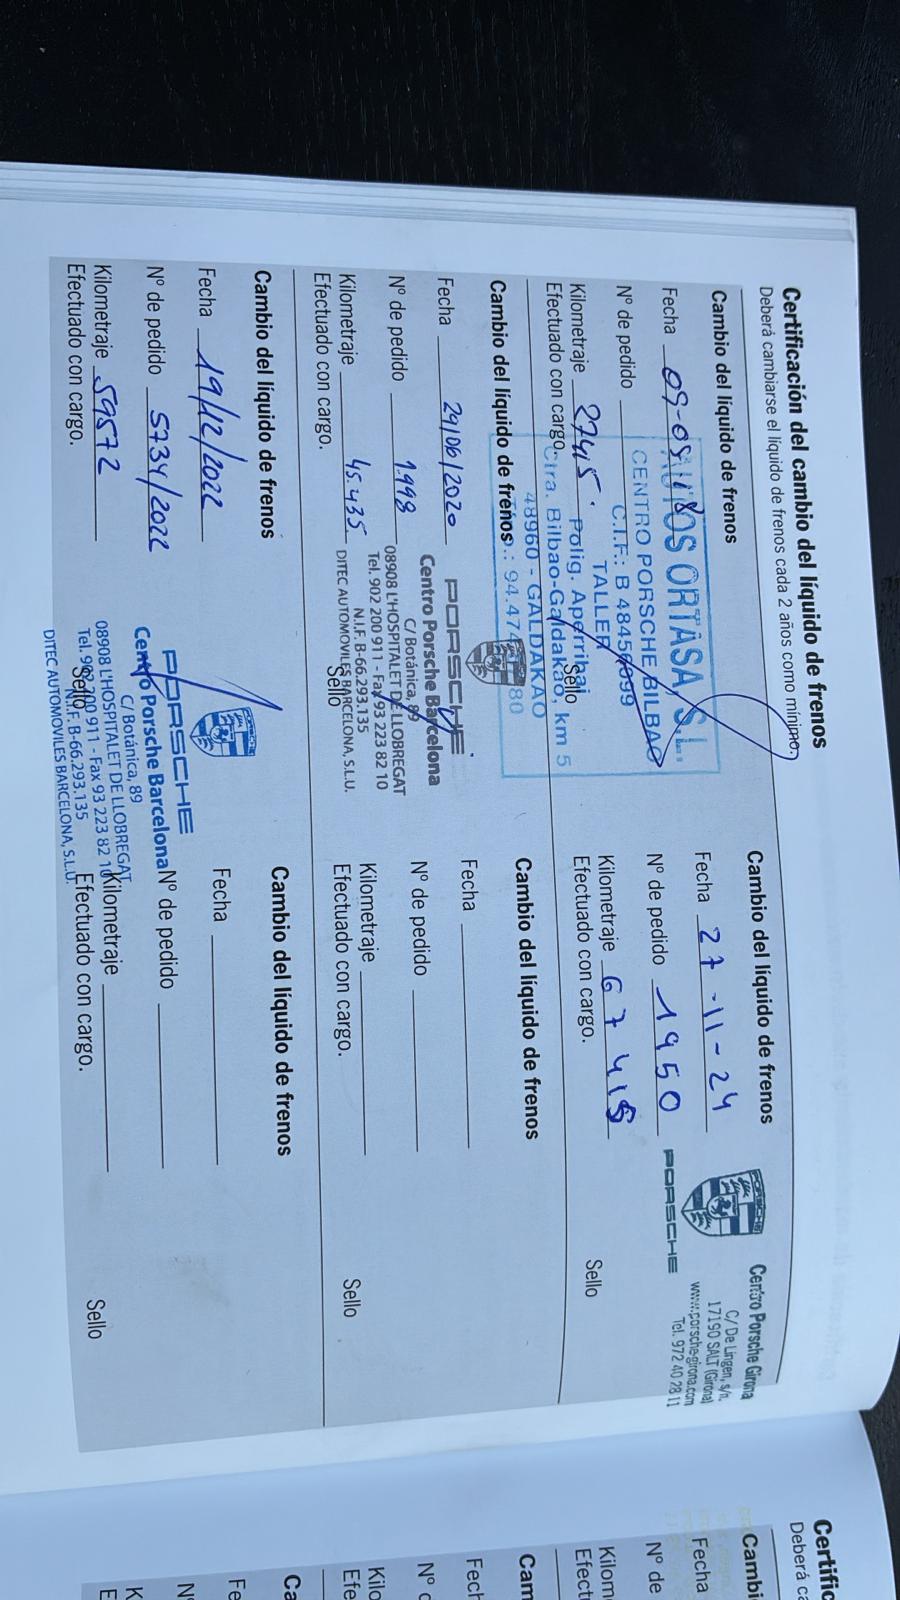 Certificación del cambio del líquido de frenos
Deberá cambiarse el líquido de frenos cada 2 años como mínimo.
Cambio del líquido de frenos
Fecha 09-08-18
Nº de pedido
Kilometraje 27415.
Efectuado con cargo.
Sello
AUTOS ORTASA, S.L.
CENTRO PORSCHE BILBAO
C.I.F.: B 48458099
TALLER
Polig. Aperribai
Ctra. Bilbao-Galdakao, km 5
48960 - GALDAKAO
Cambio del líquido de frenos
Fecha 29/06/2020
Nº de pedido 1.998
Kilometraje 45.435
Efectuado con cargo.
Sello
PORSCHE
Centro Porsche Barcelona
C/ Botánica, 89
08908 L'HOSPITALET DE LLOBREGAT
Tel. 902 200 911 - Fax 93 223 82 10
N.I.F. B-66.293.135
DITEC AUTOMOVILES BARCELONA, S.L.U.
Cambio del líquido de frenos
Fecha 19/12/2022
Nº de pedido 5734/2022
Kilometraje 59572
Efectuado con cargo.
Sello
PORSCHE
Centro Porsche Barcelona
C/ Botánica, 89
08908 L'HOSPITALET DE LLOBREGAT
Tel. 902 200 911 - Fax 93 223 82 10
N.I.F. B-66.293.135
DITEC AUTOMOVILES BARCELONA, S.L.U.
Cambio del líquido de frenos
Fecha 27-11-24
Nº de pedido 1950
Kilometraje 67415
Efectuado con cargo.
Sello
PORSCHE
PORSCHE
Centro Porsche Girona
C/ De Lingen, s/n.
17190 SALT (Girona)
www.porschegirona.com
Tel. 972 40 28 11
Cambio del líquido de frenos
Fecha
Nº de pedido
Kilometraje
Efectuado con cargo.
Sello
Cambio del líquido de frenos
Fecha
Nº de pedido
Kilometraje
Efectuado con cargo.
Sello
Certific
Deberá ca
Cambi
Fecha
Nº de
Kilom
Efect
Cam
Fech
Nº d
Kilo
Efe
Ca
Fe
Nº
K
E